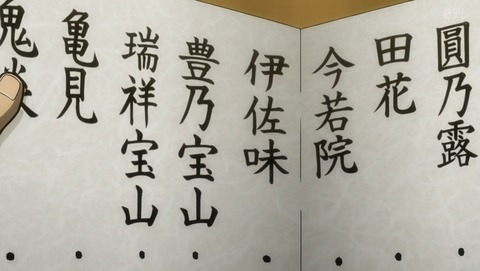 圓乃露
田花
今若院
伊佐味
豊乃宝山
瑞祥宝山
亀見